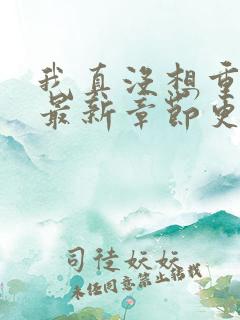 我真没想重
最新章节更
司徒妖妖
未经同意禁止转载